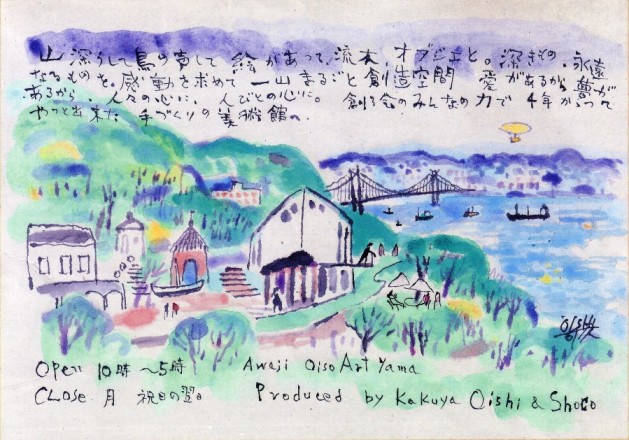 山 深うして鳥の声して 絵があって、流木 オブジェと。深きもの、永遠
なるものを。感動を求めて 一山 まるごと創造空間 愛があるから 夢が
あるから 人々の心に、人びとの心に。 創る会のみんなの力で 4年かかって
やっと出来た 手づくりの美術館へ。
OPen 10時 〜5時 Awaji Oiso Art Yama
CLOSe 月 祝日の翌日 Produced by Kakuya Oishi & Shoco